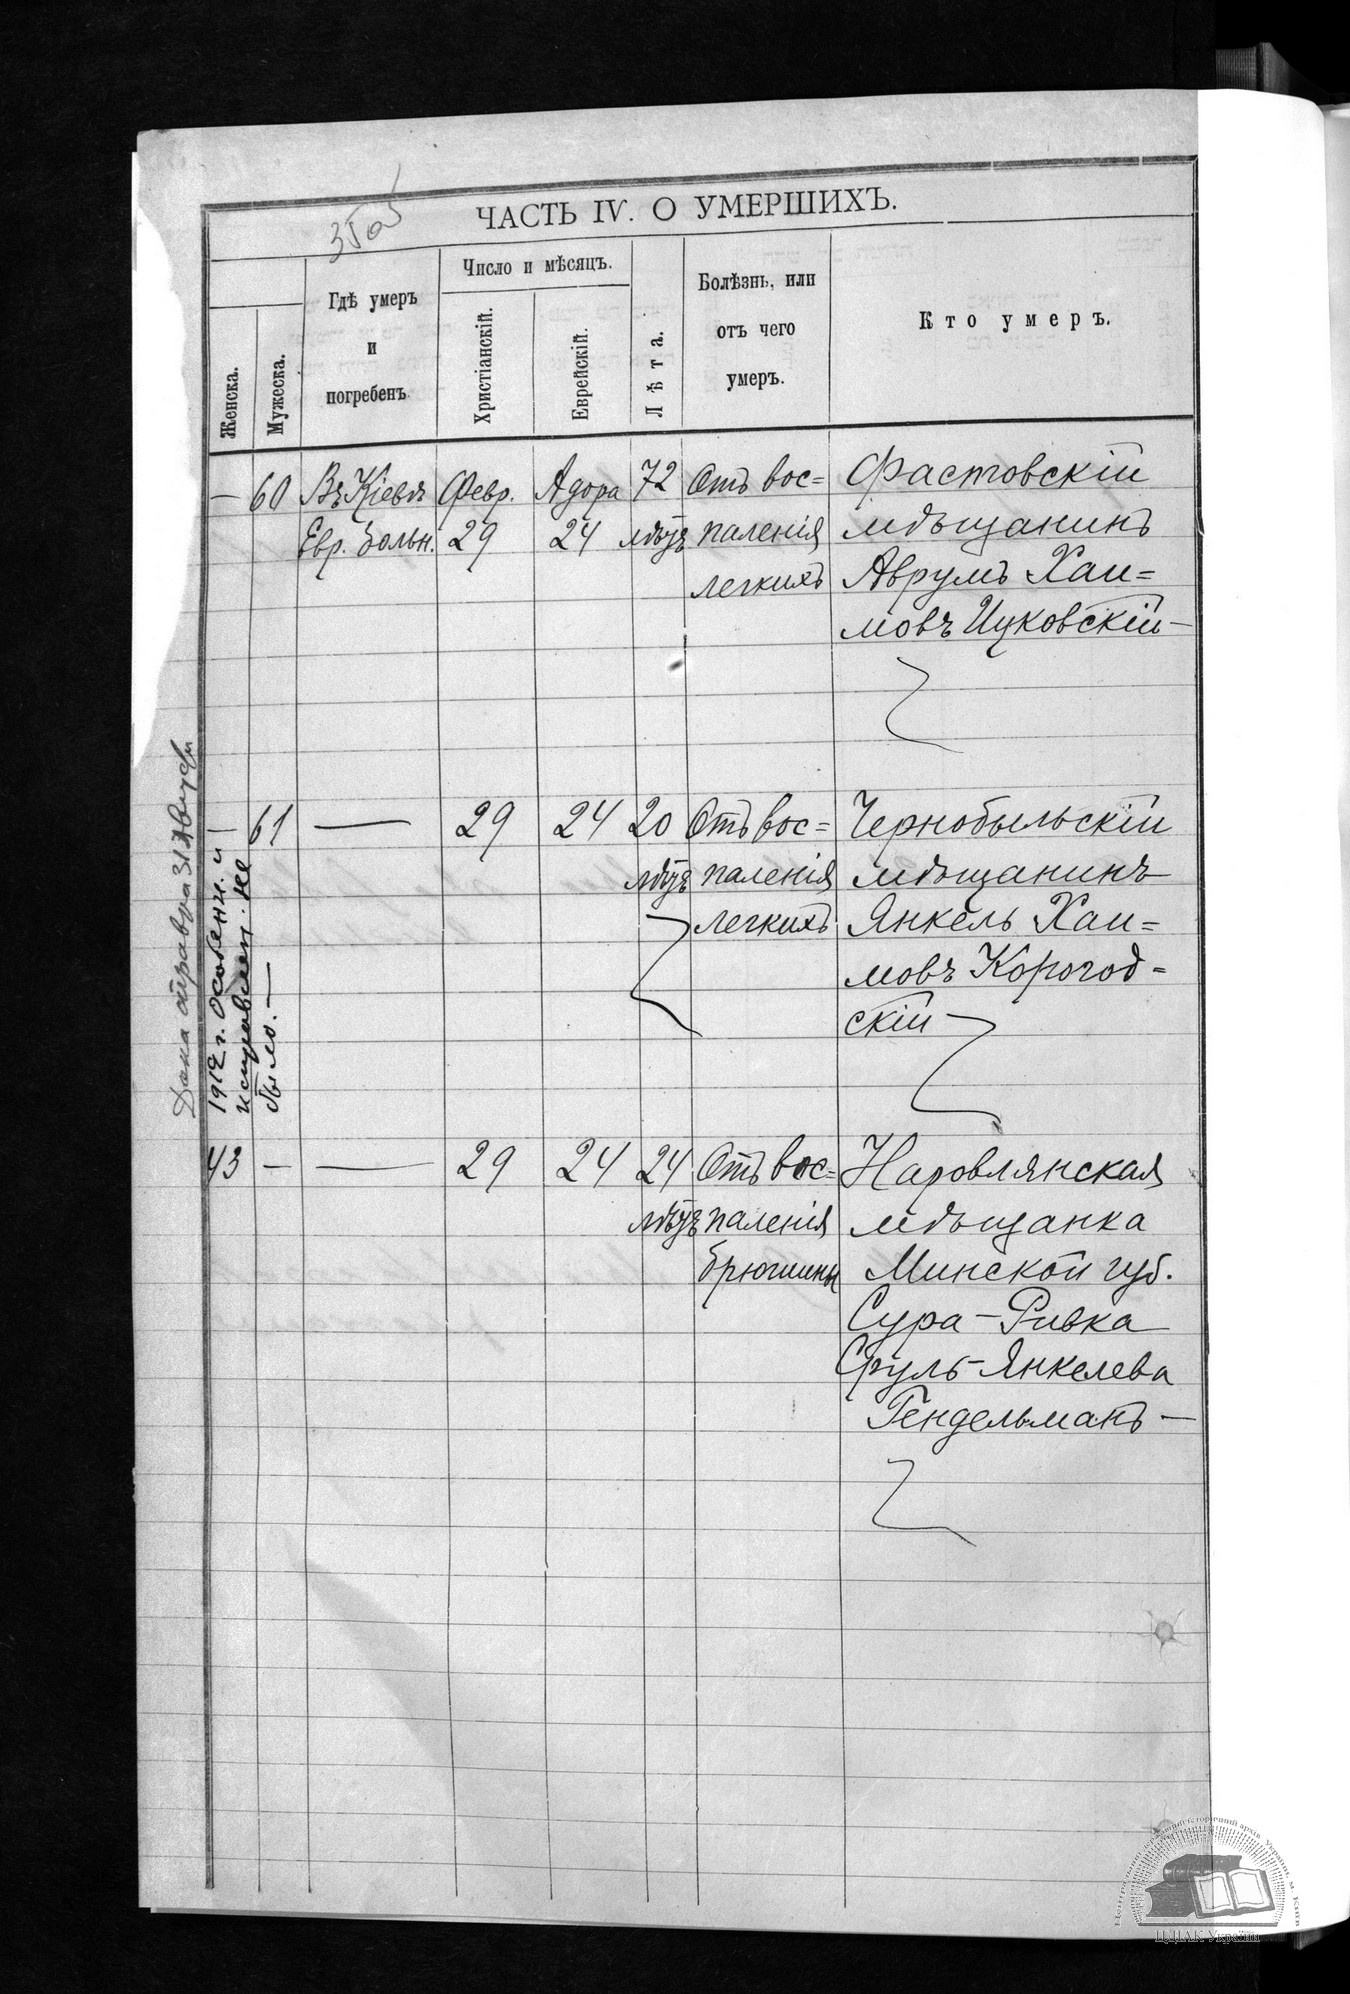 ЧАСТЬ IV. О УМЕРШИХЪ.
Женска.
Мужеска.
Гдѣ умеръ
и
погребенъ
Число и мѣсяцъ.
Христіанскій.
Еврейскій.
Лѣта.
Болѣзнь, или
отъ чего
умеръ.
Кто умеръ.
— 60 Въ Кіевѣ Февр. Адора 72 Отъ вос= Фастовскій
Евр. больн. 29 24 лѣтъ паленія мѣщанинъ
легкихъ Аврумъ Хаи=
мовъ Ицковскій —
— 61 — 29 24 20 Отъ вос= Чернобыльскій
лѣтъ паленія мѣщанинъ
легкихъ Янкель Хаи=
мовъ Корогод=
скій
43 — — 29 24 24 Отъ вос= Наровлянская
лѣтъ паленія мѣщанка
брюшины Минской губ.
Сура-Ривка
Сруль-Янкелева
Гендельманъ —
Дана справка 31 Августа
1912 г. Особенн. и
исправлен. не
было. —
ЦДІАК України